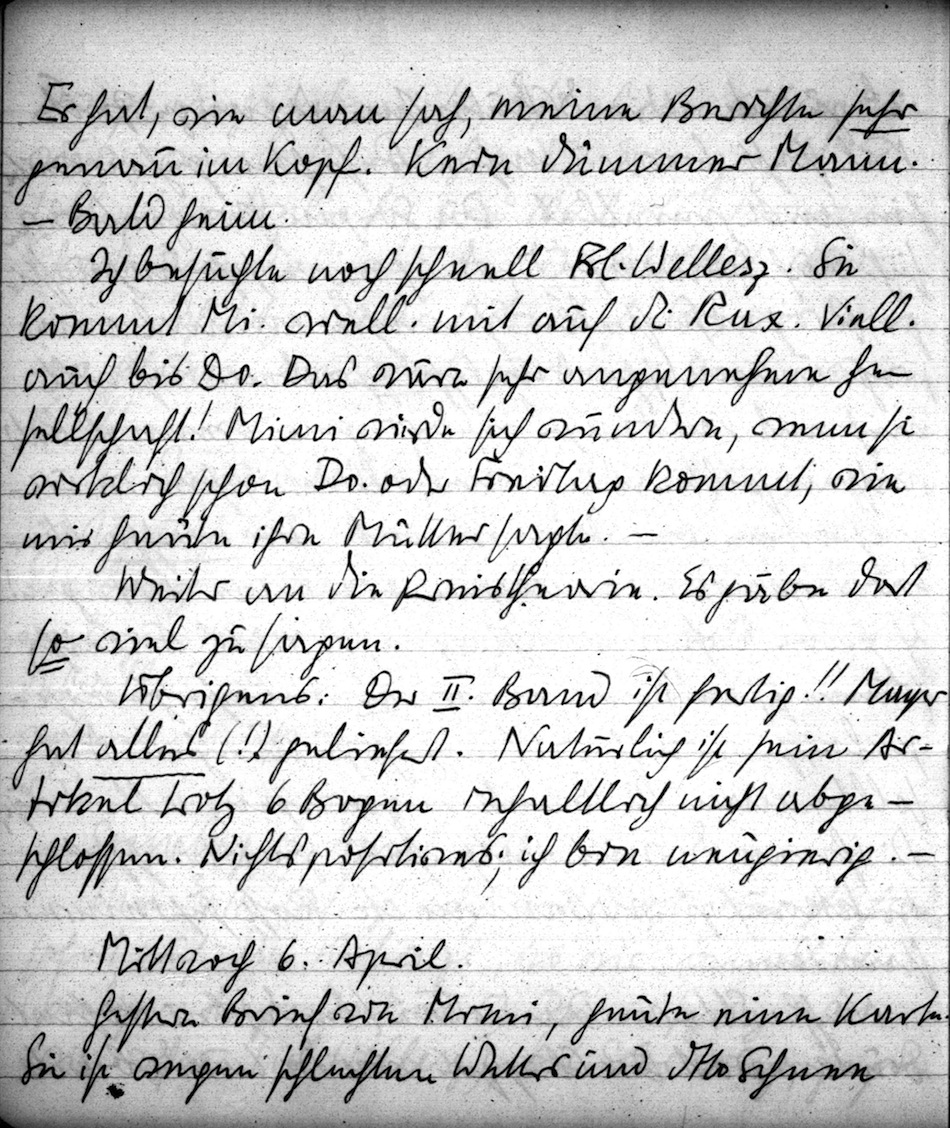 Er hat, wie man sah, meine Berichte sehr
genau im Kopf. Kein dummer Mann.
– Bald heim.
Ich besuchte noch schnell Frl. Wellesz. Sie
kommt Mi. event. mit auf die Rax. Viell.
auch bis Do. Das wäre sehr angenehme Ge-
sellschaft! Mimi würde sich wundern, wenn sie
wirklich schon Do. oder Freitag kommt, wie
mir heute ihre Mutter sagte. –
Weiter an die Preistheorie. Es gäbe dort
so viel zu sagen.
Übrigens: Der II. Band ist fertig!! Mayer
hat alles (!) geliefert. Natürlich ist sein Ar-
tikel trotz 6 Bogen inhaltlich nicht abge-
schlossen. Nichts positives; ich bin neugierig. –
Mittwoch 6. April.
Gestern Brief von Mimi, heute eine Karte.
Sie ist wegen schlechten Wetters und Schnee